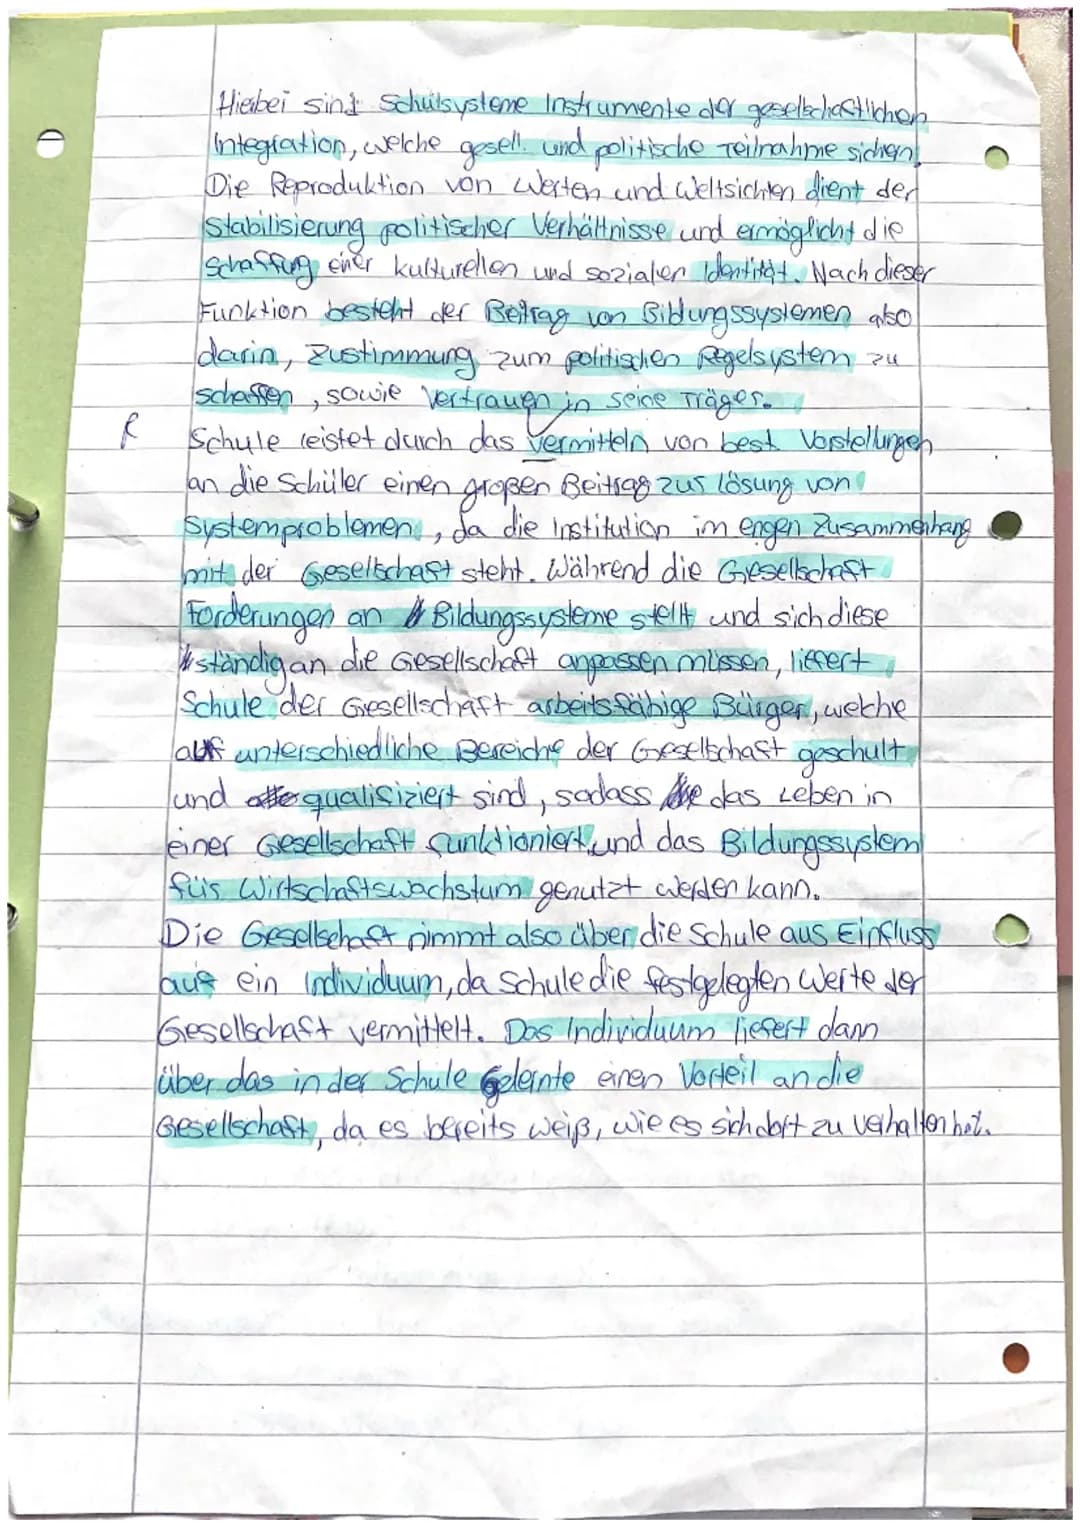 Hierbei sind Schulsysteme Instrumente der gesellschaftlichen
Integration, welche gesell. und politische Teilnahme sichern.
Die Reproduktion von Werten und Weltsichten dient der
Stabilisierung politischer Verhältnisse und ermöglicht die
Schaffung einer kulturellen und sozialen Identität. Nach dieser
Funktion besteht der Beitrag von Bildungssystemen also
darin, Zustimmung zum politischen Regelsystem zu
schaffen, sowie Vertrauen in seine Träger.
R Schule leistet durch das vermitteln von best. Vorstellungen
an die Schüler einen großen Beitrag zur Lösung von
Systemproblemen, da die Institution im engen Zusammenhang
mit der Gesellschaft steht. Während die Gesellschaft
Forderungen an Bildungssysteme stellt und sich diese
ständig an die Gesellschaft anpassen müssen, liefert
Schule der Gesellschaft arbeitsfähige Bürger, welche
auf unterschiedliche Bereiche der Gesellschaft geschult
und qualifiziert sind, sodass das Leben in
einer Gesellschaft funktioniert und das Bildungssystem
für Wirtschaftswachstum genutzt werden kann.
Die Gesellschaft nimmt also über die Schule aus Einfluss
auf ein Individuum, da Schule die festgelegten Werte der
Gesellschaft vermittelt. Das Individuum liefert dann
über das in der Schule Gelernte einen Vorteil an die
Gesellschaft, da es bereits weiß, wie es sich dort zu verhalten hat.